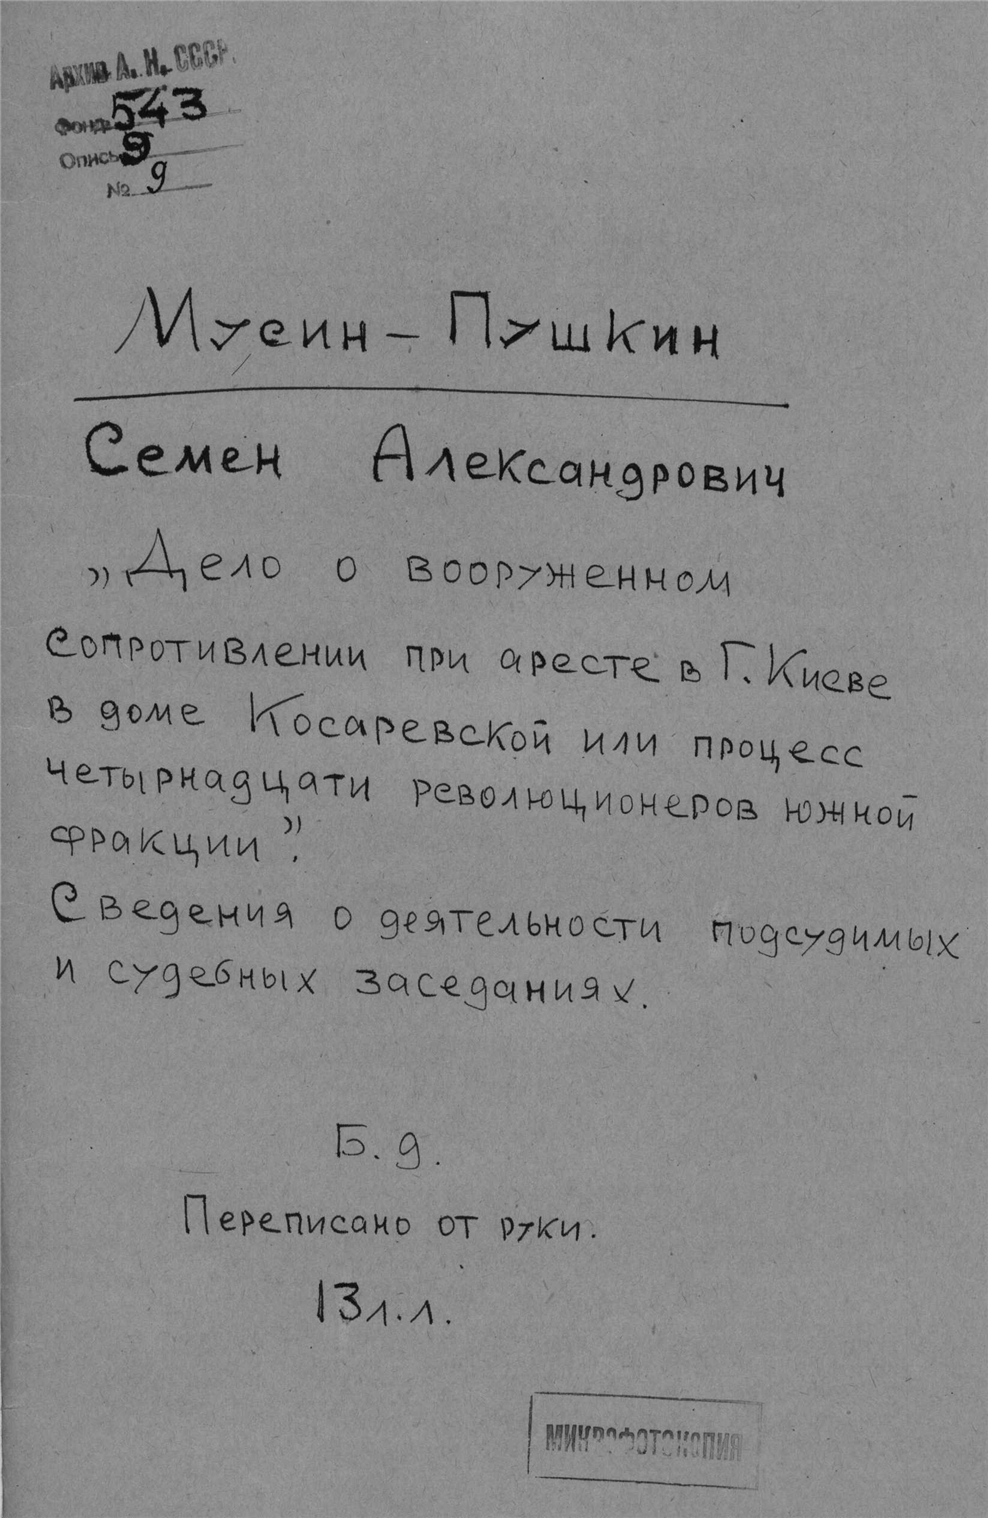 Архив А. Н. СССР.
Фонд 543
Опись 9
№ 9
Мусин-Пушкин
Семен Александрович
„Дело о вооруженном
сопротивлении при аресте в Г. Киеве
в доме Косаревской или процесс
четырнадцати революционеров южной
фракции".
Сведения о деятельности подсудимых
и судебных заседаниях.
Б. д.
Переписано от руки.
13 л.л.
МИКРОФОТОКОПИЯ